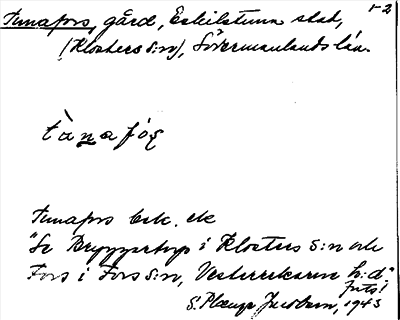 1-2
Tunafors, gård, Eskilstuna stad,
(Klosters s:n), Södermanlands län.
tànafóş
Tunafors bsk. etc
"Se Bryggartorp i Klosters s:n och
Fors i Fors s:n, Vesterrekarne h:d"
1943